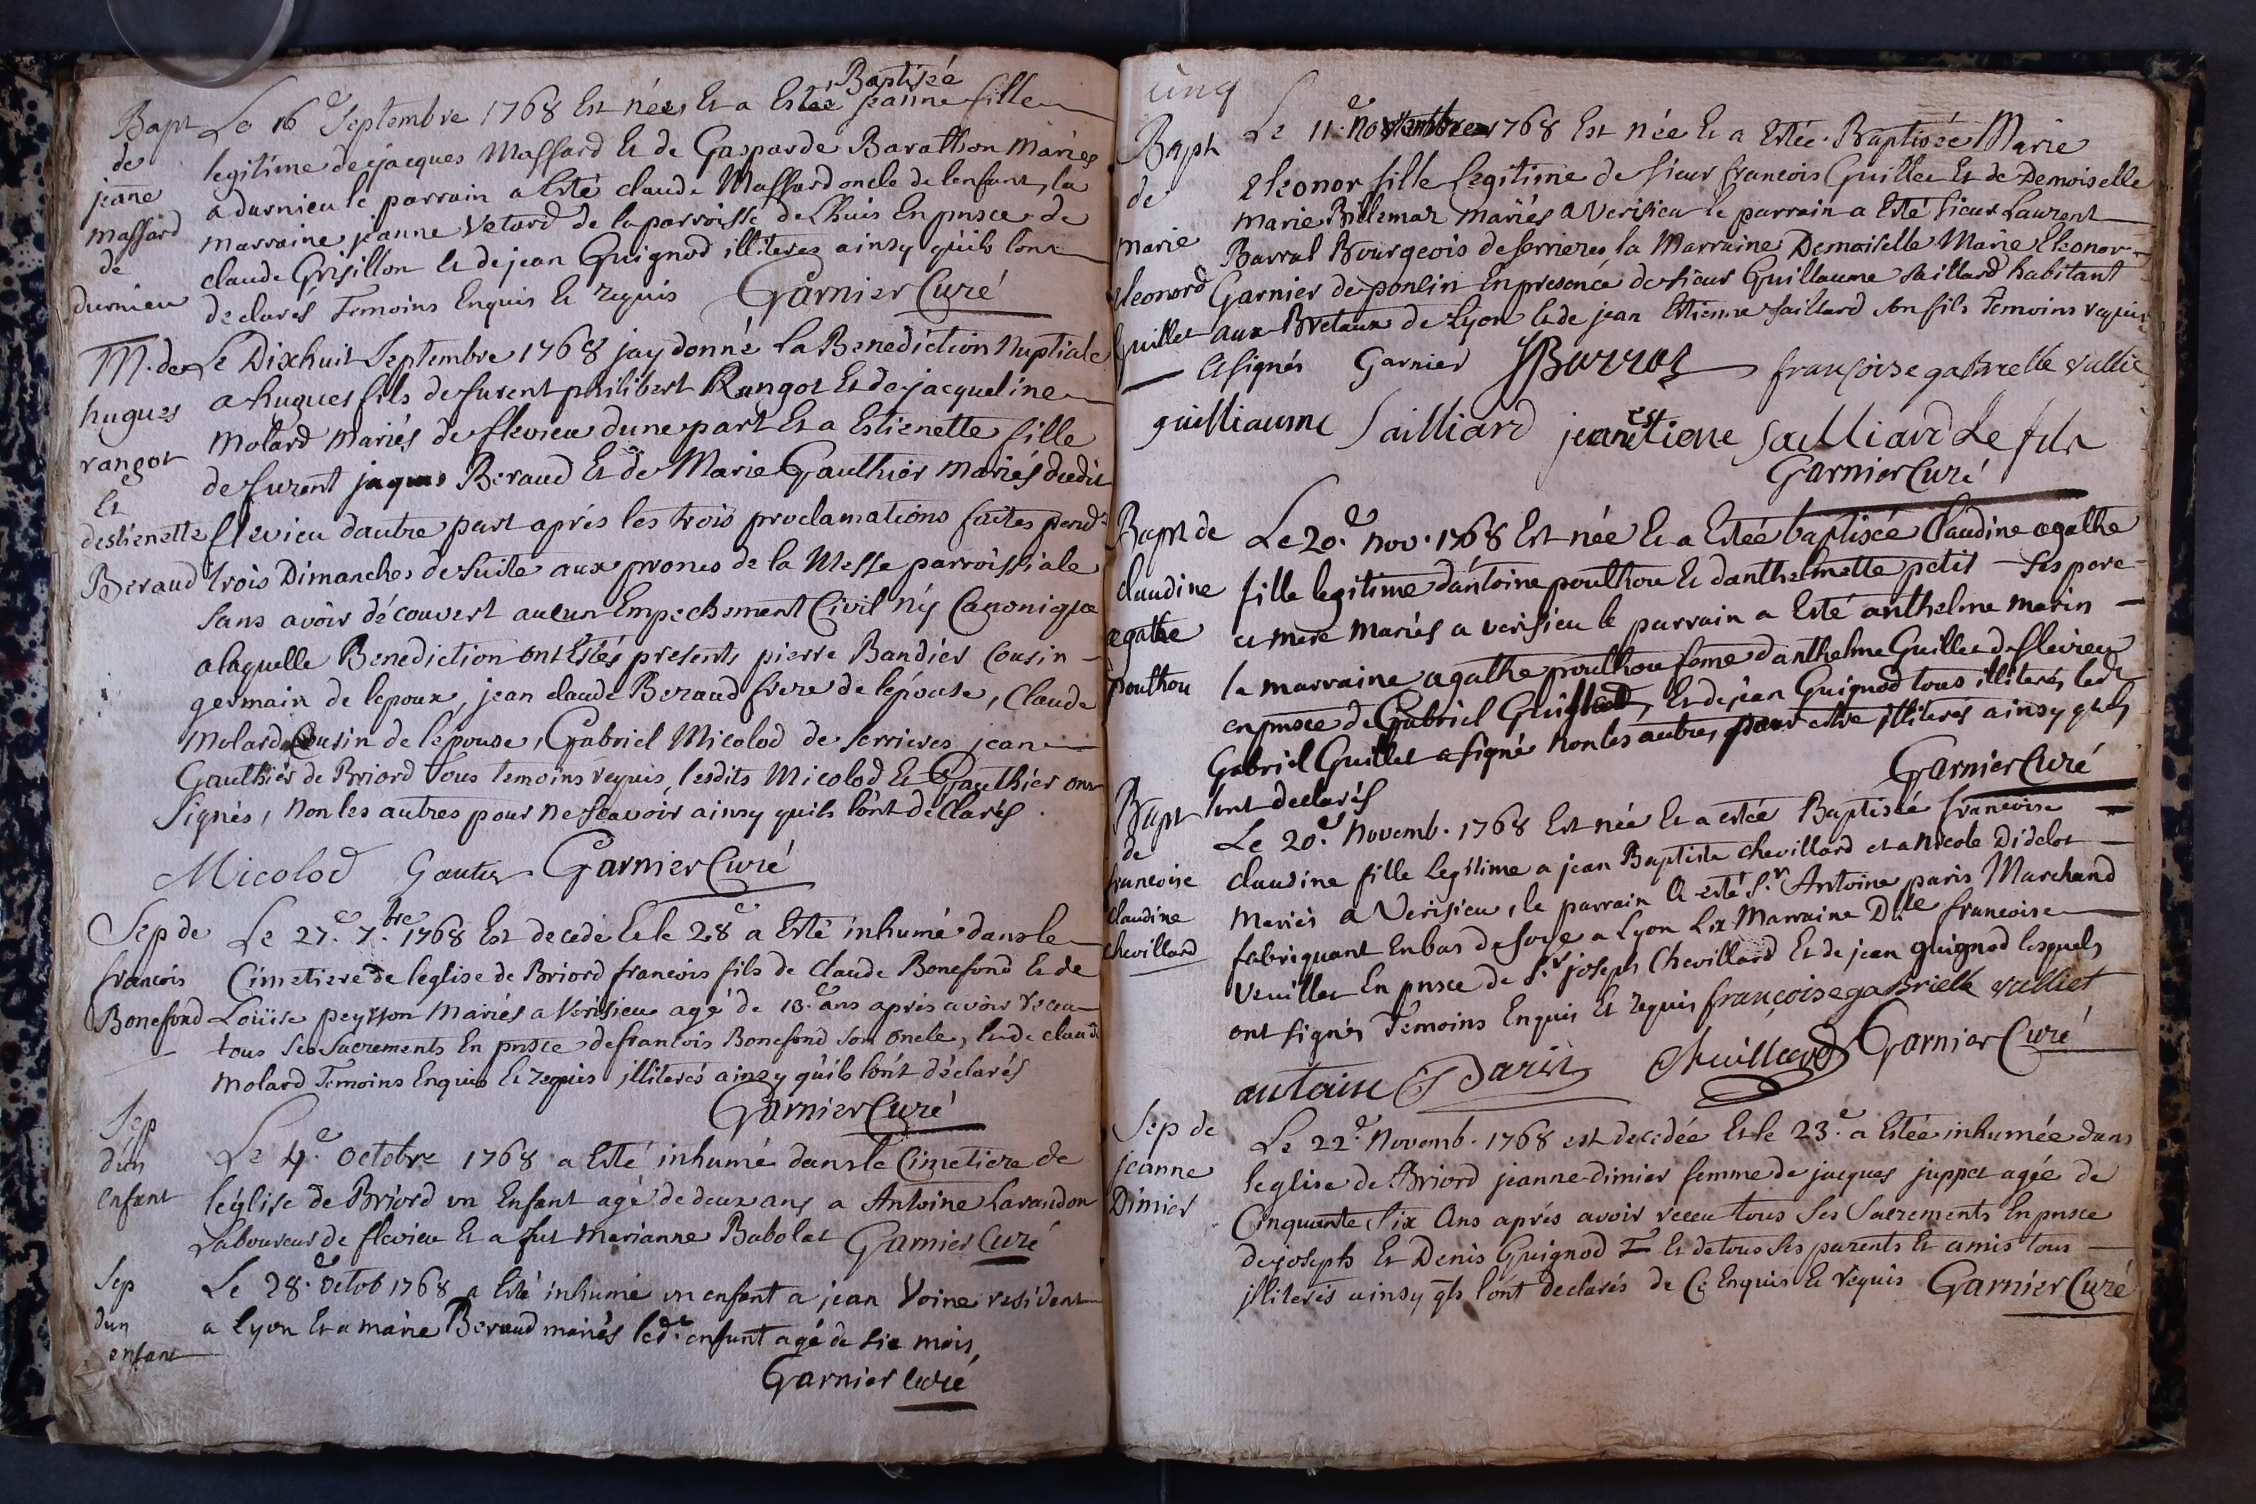 Baptizée
Bapt Le 16e Septembre 1768 Est née Et a Estée jeanne fille
de legitime de jacques Massard Et de Gasparde Barathon Mariés
jeanne a durnieu le parrain a Esté claude Massard oncle de lenfant, la
massard marraine jeanne Vetard de la parroisse de Lhuis En pnsce de
de claude Grisillon Et de jean Guignod illiteres ainsy quils lont
durnieu declarés Temoins Enquis Et requis Garnier Curé
M. de Le Dixhuit Septembre 1768 jay donné la Benediction Nuptiale
hugues a hugues fils de furent philibert Rangot Et de jacqueline
rangot Molard Mariés de flevieu dune part Et a Estienette fille
Et de furent jaques Beraud Et de Marie Gauthier Mariés dudit
destienette flevieu dautre part aprés les trois proclamations faites pend.
Beraud trois Dimanches de suite aux prones de la Messe parroissiale
sans avoir découvert aucun Empechement Civil ny Canonique
a laquelle Benediction ont Estés presents pierre Bandier Cousin
germain de lepoux, jean claude Beraud frere de lépouse, Claude
Molard Cousin de lépouse, Gabriel Micolod de serrieres jean
Gauthier de Briord tous temoins requis, lesdits Micolod Et Gauthier ont
signés, Non les autres pour ne scavoir ainsy quils lónt déclarés.
Micolod Gautier Garnier Curé
Sep de Le 27e 7.bre 1768 Est decedé Et le 28e a Esté inhumé dans le
francois Cimetiere de leglise de Briord francois fils de Claude Bonefond Et de
Bonefond Loüise peysson Mariés a Verisieu agé de 13e ans aprés avoir receu
tous ses sacrements En pnsce de francois Bonefond son oncle, Et de claude
Molard Temoins Enquis Et requis illiterés ainsy quils lónt déclarés
Garnier Curé
Sep
dun Le 4e Octobre 1768 a Esté inhumé dans le Cimetiere de
enfant léglise de Briord un Enfant agé de deux ans a Antoine Larandon
Laboureur de flevieu Et a fut Marianne Babolat Garnier Curé
Sep Le 28e Octob 1768 a Esté inhumé un enfant a jean Voine resident
dun a Lyon Et a marie Beraud mariés led.t enfant agé de six mois,
enfant
Garnier Curé
cinq
Bapt Le 11e Novembre 1768 Est née Et a Estée Baptisée Marie
de Eleonor fille legitime de sieur francois Guillet Et de Demoiselle
marie Marie Billemaz mariés a Verisieu le parrain a Esté sieur Laurent
Eleonord Barral Bourgeois de serrieres la Marraine Demoiselle Marie Eleonor
Guillet Garnier de poncin En presence de sieur Guillaume Saillard habitant
aux Bretaux de Lyon Et de jean Etienne Saillard son fils Temoins requis
Et signés Garnier Barral françoise gabrielle vulliet
guilliaume Sailliard jean estiene Sailliard Le fils
Garnier Curé
Bapt de Le 20e Nov. 1768 Est née Et a Estée baptisée Claudine agathe
claudine fille legitime dántoine poulhou Et danthelmette petit ses pere
agathe et mere Mariés a verisieu le parrain a Esté anthelme marin
poulhou la marraine agathe poulhou fome danthelme Guillet de flevieu
en pnsce de Gabriel Guillet, Et de jean Guignod tous illiterés led.t
Gabriel Guillet a signé Non les autres pour estre illiteres ainsy quils
lont declarés Garnier Curé
Bapt Le 20e Novemb. 1768 Est née Et a estée Baptisée francoise
de claudine fille Legitime a jean Baptiste chevillard et a Nicole Didelot
francoise Mariés a Verisieu, le parrain a esté S.r Antoine paris Marchand
claudine fabriquant En bas de soye a Lyon La Marraine D.lle francoise
chevillard Veuillet En pnsce de S.r joseph Chevillard Et de jean guignod lesquels
ont signés Temoins Enquis Et requis françoise gabrielle vulliet
antoine Paris Chevillard Garnier Curé
Sep de Le 22e Novemb. 1768 est decedée Et le 23e a Estée inhumée dans
jeanne leglise de Briord jeanne dimier femme de jacques juppet agée de
Dimier Cinquante six Ans aprés avoir receu tous ses Sacrements En pnsce
de joseph Et Denis Guignod Et de tous ses parents Et amis tous
illiterés ainsy qls lónt declarés de Ce Enquis Et requis Garnier Curé